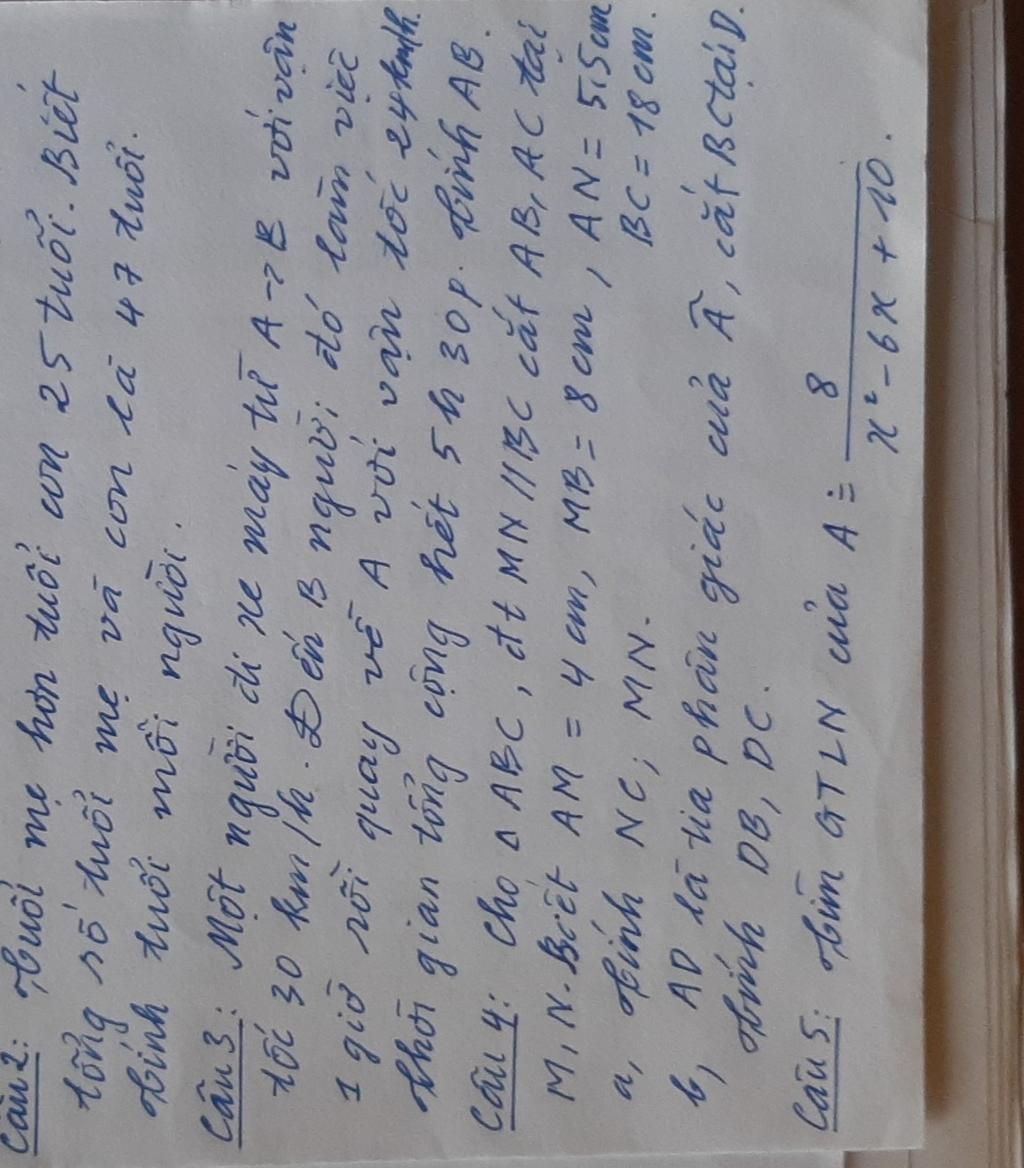 Câu 2: Tuổi mẹ hơn tuổi con 25 tuổi. Biết
tổng số tuổi mẹ và con là 47 tuổi.
Tính tuổi mỗi người.
Câu 3: Một người đi xe máy từ A → B với vận
tốc 30 km/h. Đến B người đó làm việc
1 giờ rồi quay về A với vận tốc 24km/h.
Thời gian tổng cộng hết 5h 30p. Tính AB.
Câu 4: Cho Δ ABC, đt MN // BC cắt AB, AC tại
M, N. Biết AM = 4 cm, MB = 8 cm, AN = 5,5 cm
BC = 18 cm.
a, Tính NC; MN.
b, AD là tia phân giác của Â, cắt BC tại D.
Tính DB, DC.
Câu 5: Tìm GTLN của A = 8 / x² - 6x + 10.